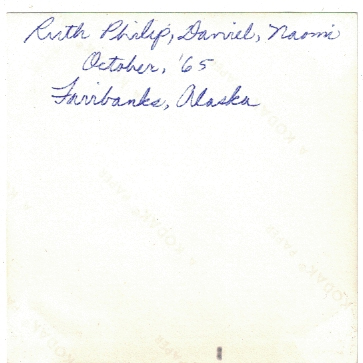 Ruth Philip, Daniel, Naomi
October, '65
Fairbanks, Alaska